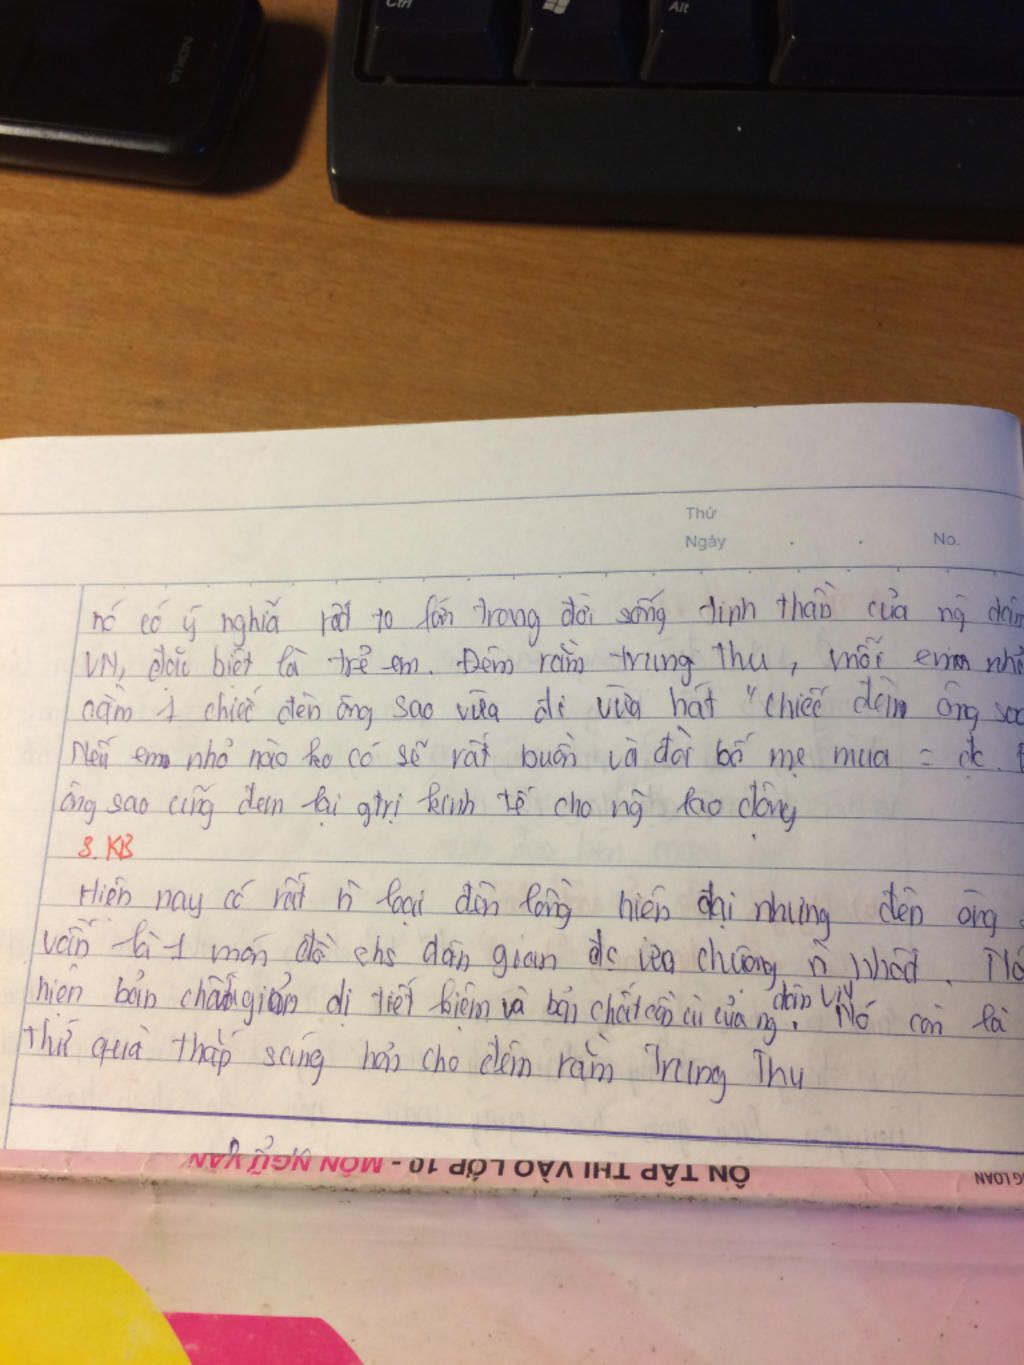 Ctrl
Alt
NOKIA
Thứ
Ngày
No.
nó có ý nghĩa rất to lớn trong đời sống tinh thần của ng dân
VN, đặc biệt là trẻ em. Đêm rằm trung thu, mỗi em nhỏ
cầm 1 chiếc đèn ông sao vừa đi vừa hát "chiếc đèn ông sao
Nếu em nhỏ nào ko có sẽ rất buồn và đòi bố mẹ mua = đc.
ông sao cũng đem lại gtrị kinh tế cho ng lao động
3. KB
Hiện nay có rất n loại đèn lồng hiện đại nhưng đèn ông
vẫn là 1 món đồ chs dân gian đc ưa chuộng n nhất. Nó
hiện bản chất giản dị tiết kiệm và bản chất cần cù của ng dân VN. Nó còn là
thứ quà thắp sáng hơn cho đêm rằm Trung Thu
ÔN TẬP THI VÀO LỚP 10 - MÔN NGỮ VĂN
G LOAN